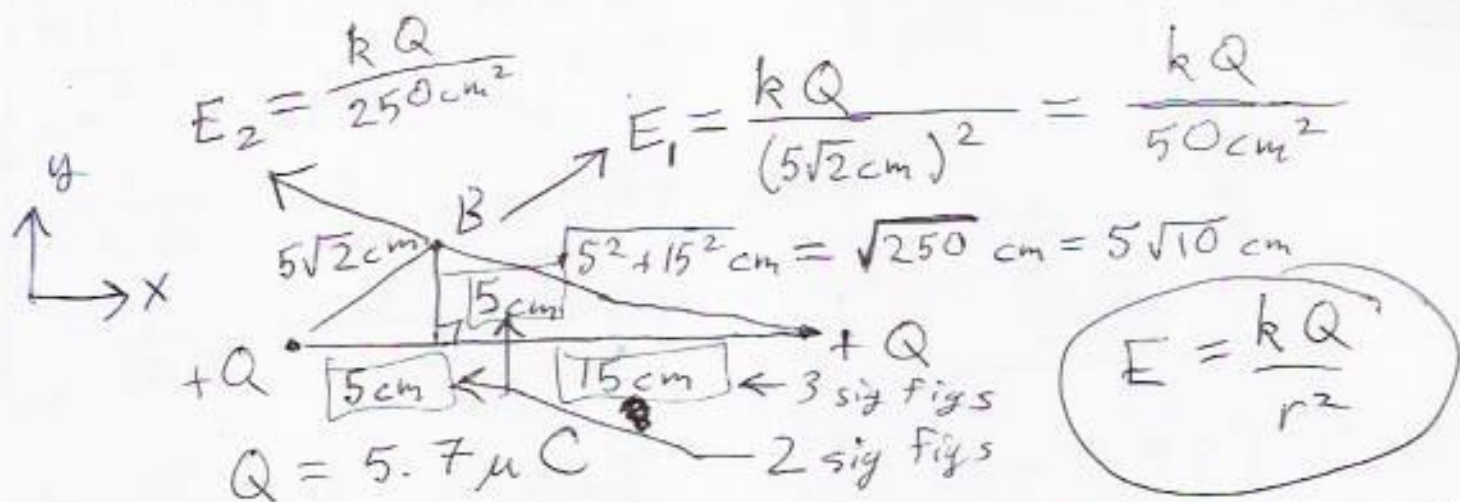 E₂ = kQ / 250 cm²
E₁ = kQ / (5√2 cm)² = kQ / 50 cm²
y
B
5√2 cm
√5² + 15² cm = √250 cm = 5√10 cm
x
5 cm
+Q
+ Q
5 cm
15 cm ← 3 sig figs
2 sig figs
Q = 5.7 μC
E = kQ / r²